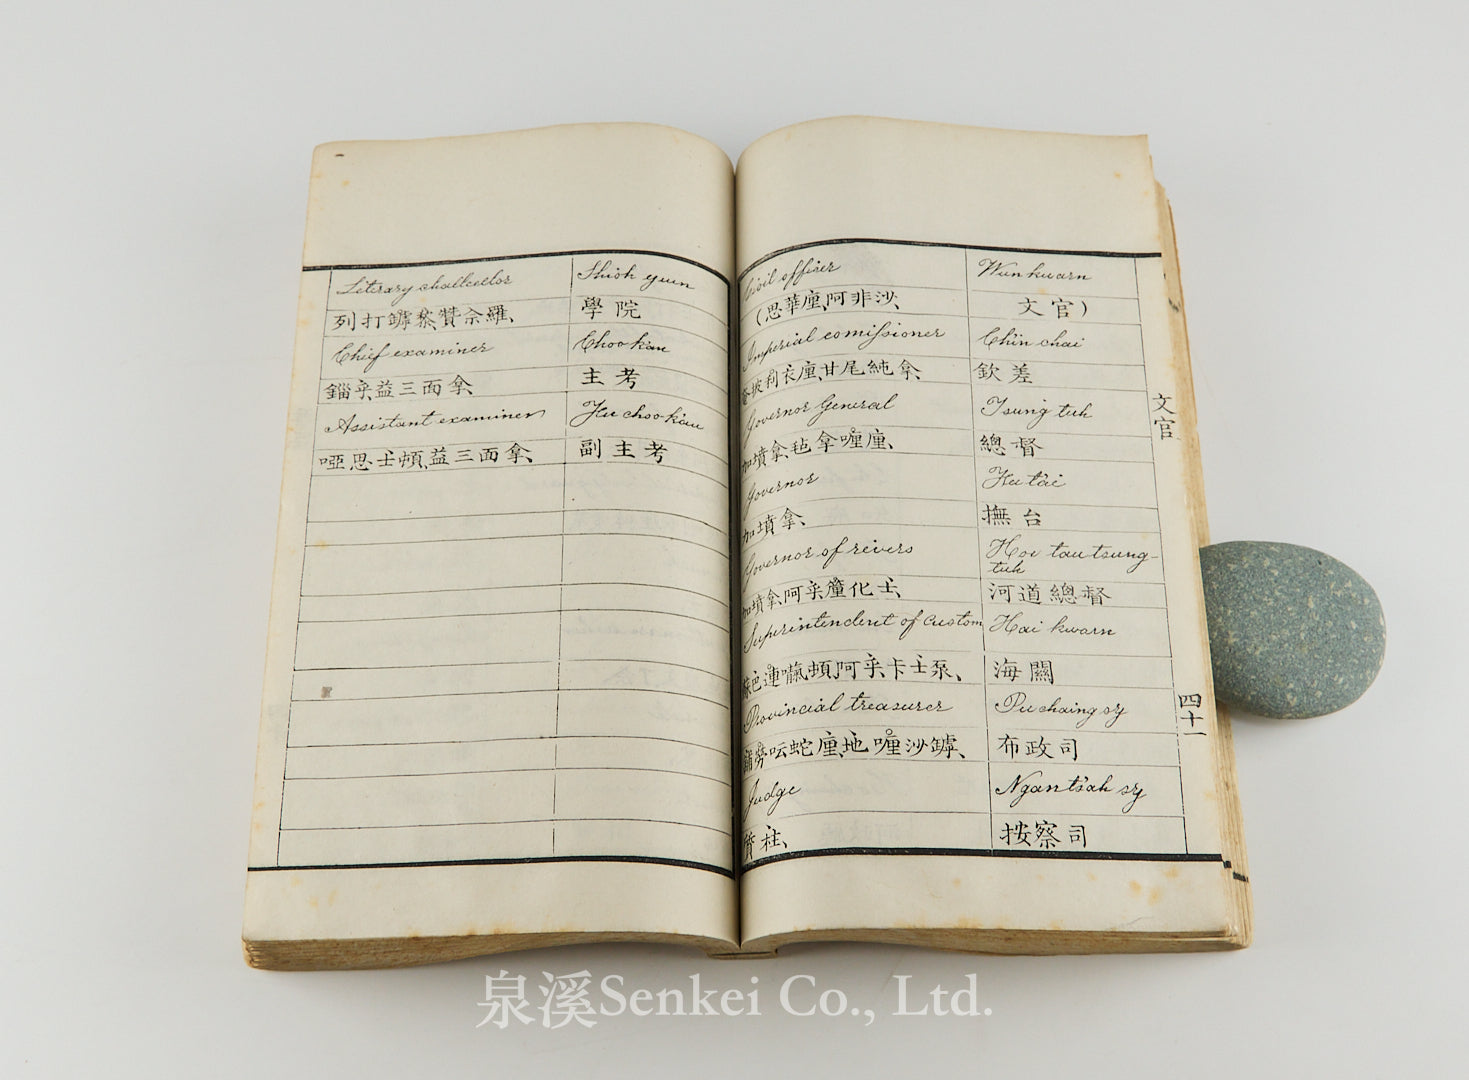 Literary challcellor
Shioh yuen
列打鏬黎贊佘羅、
學院
Chief examiner
Choo kau
錙乎益三面拿、
主考
Assistant examiner
Fu choo-kau
啞思士頓益三面拿、
副主考
Civil officer
Wunkwarn
(思華㕓阿非沙、
文官)
Imperial comissioner
Chin chai
坡利衣㕓甘尾純拿、
欽差
Governor General
Tsung tuh
加墳拿毡拿喱㕓、
總督
Governor
Fu tai
加墳拿、
撫台
Governor of rivers
Hoi tau tsung-
tuh
加墳拿阿乎釐化士、
河道總督
Superintendent of custom
Hai kwarn
連頓阿乎卡士泵、
海關
Provincial treasurer
Pu chaing sy
勞呍蛇㕓地喱沙鏬、
布政司
Judge
Ngan tsah sy
質柱、
按察司
文官
四十一
泉溪Senkei Co., Ltd.